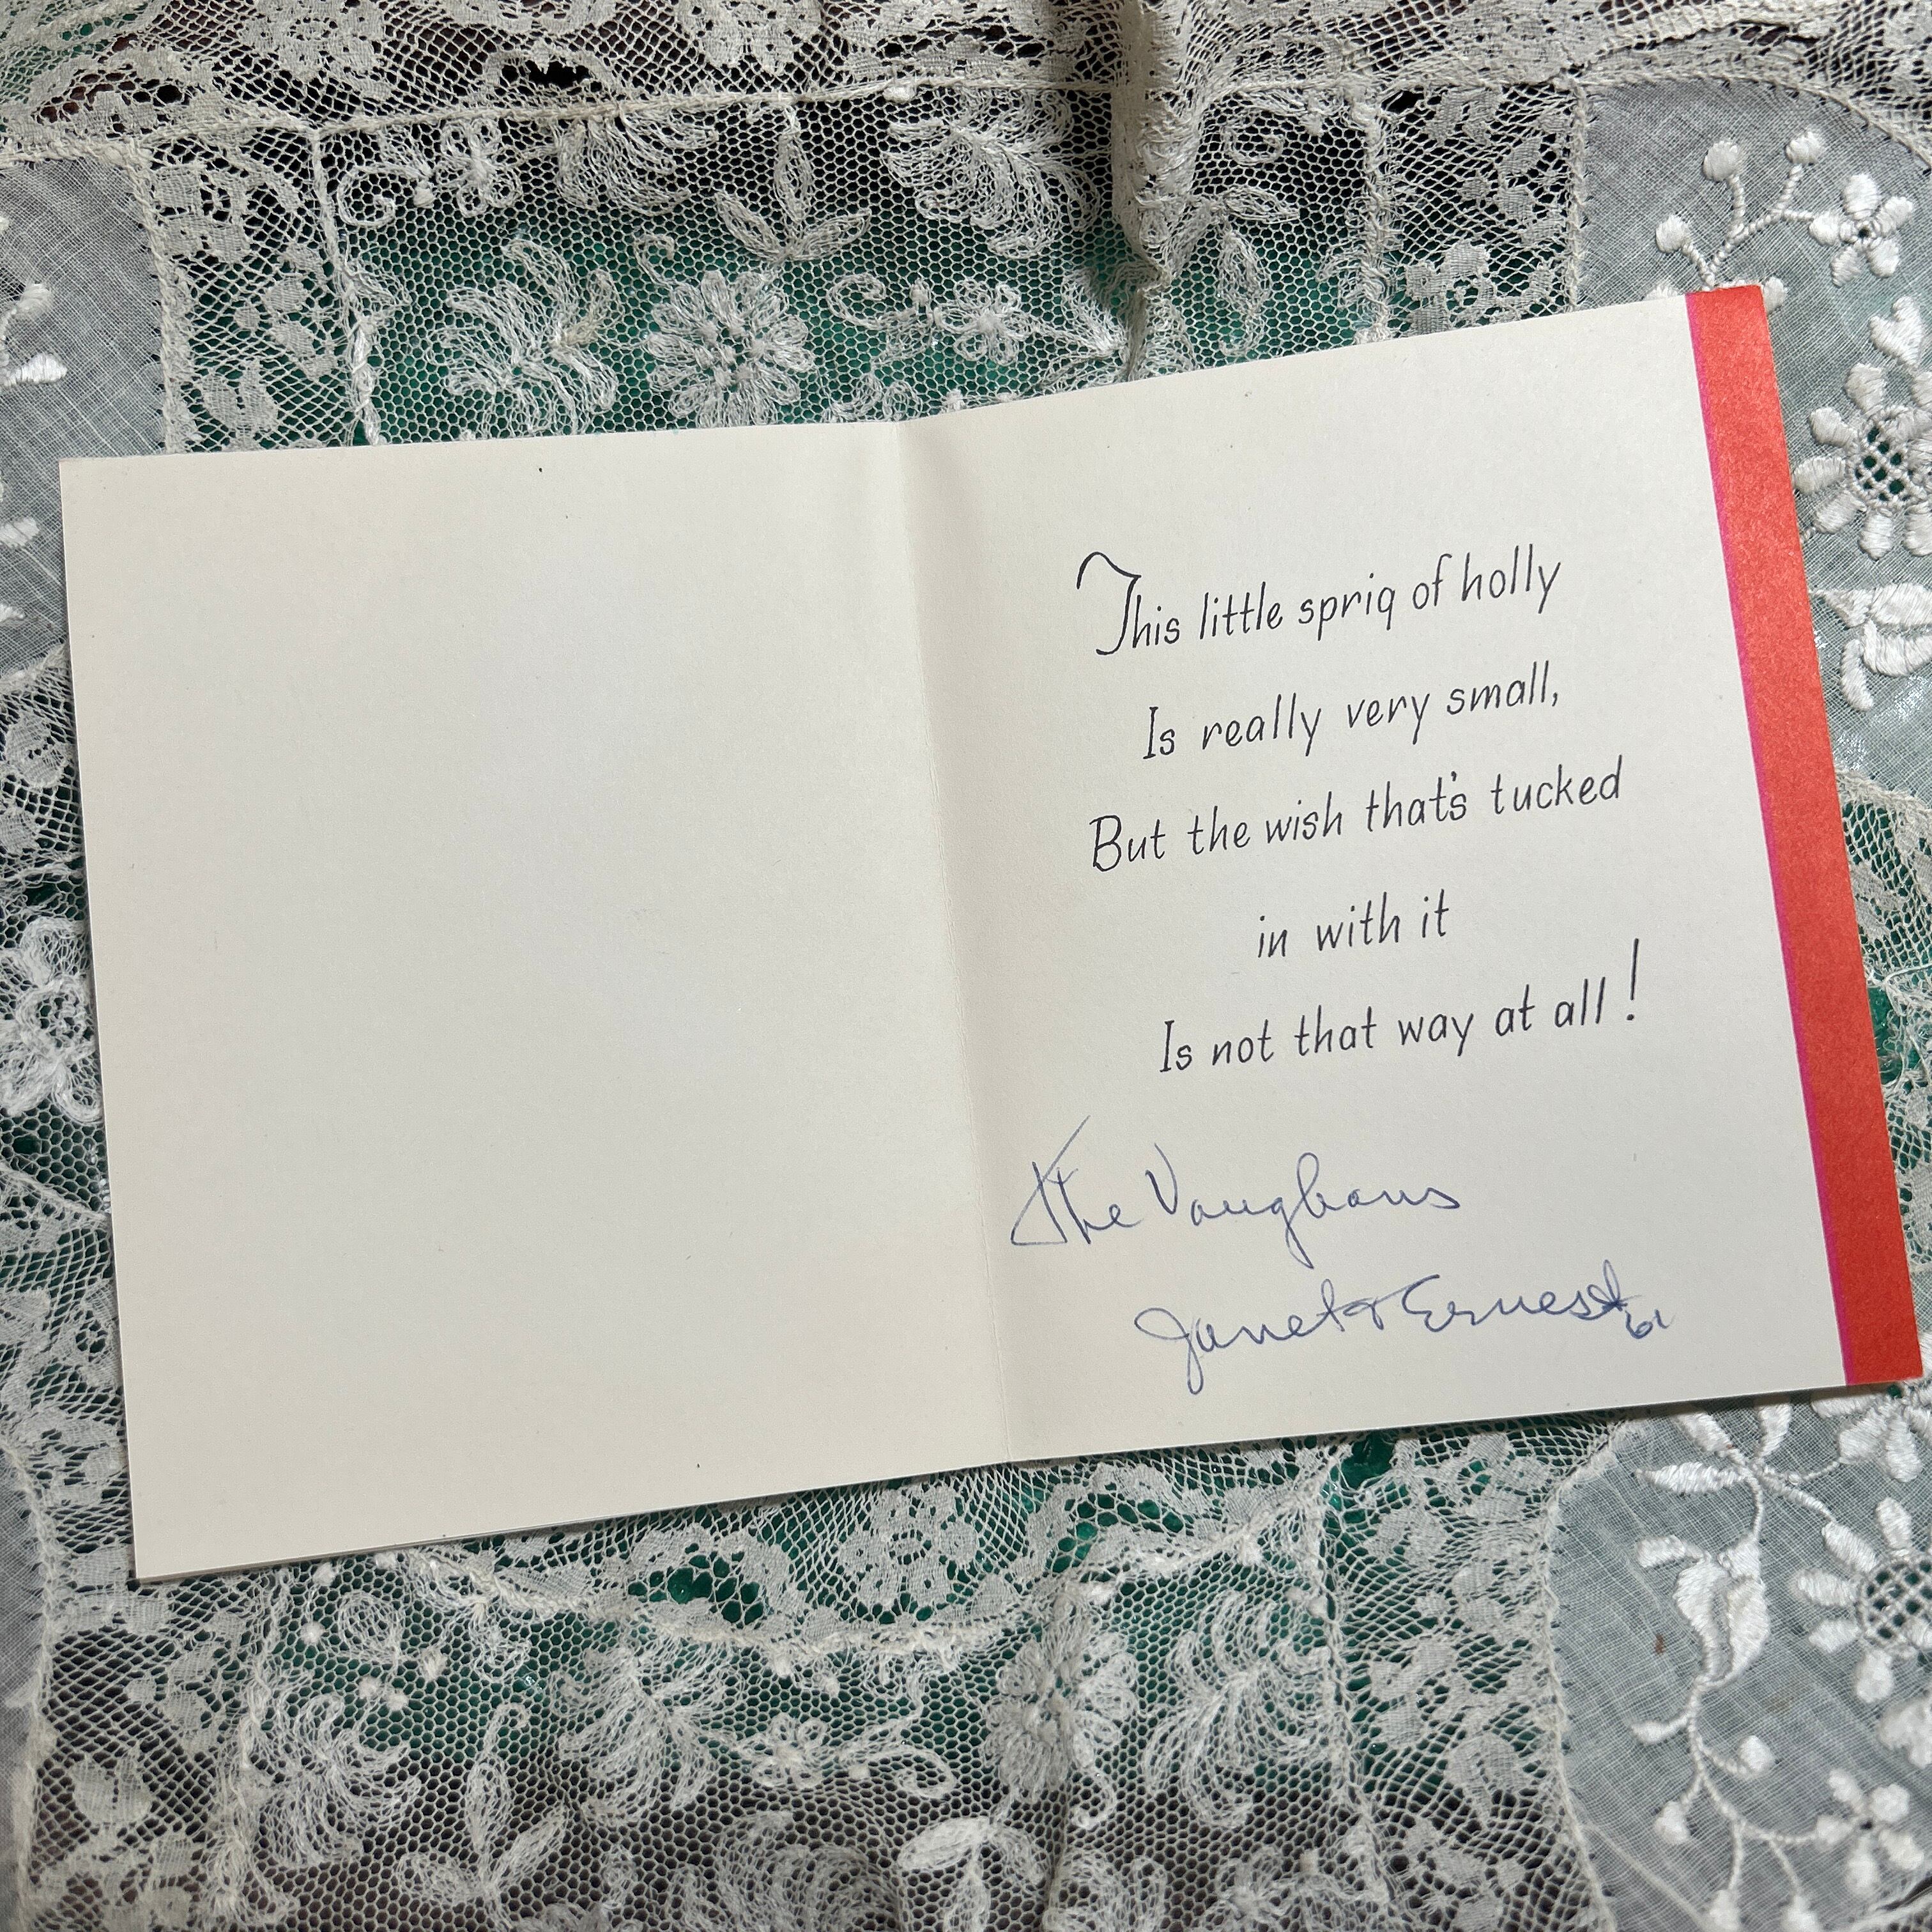 This little sprig of holly
Is really very small,
But the wish that's tucked
in with it
Is not that way at all!
The Vaughans
Janet & Ernest
61